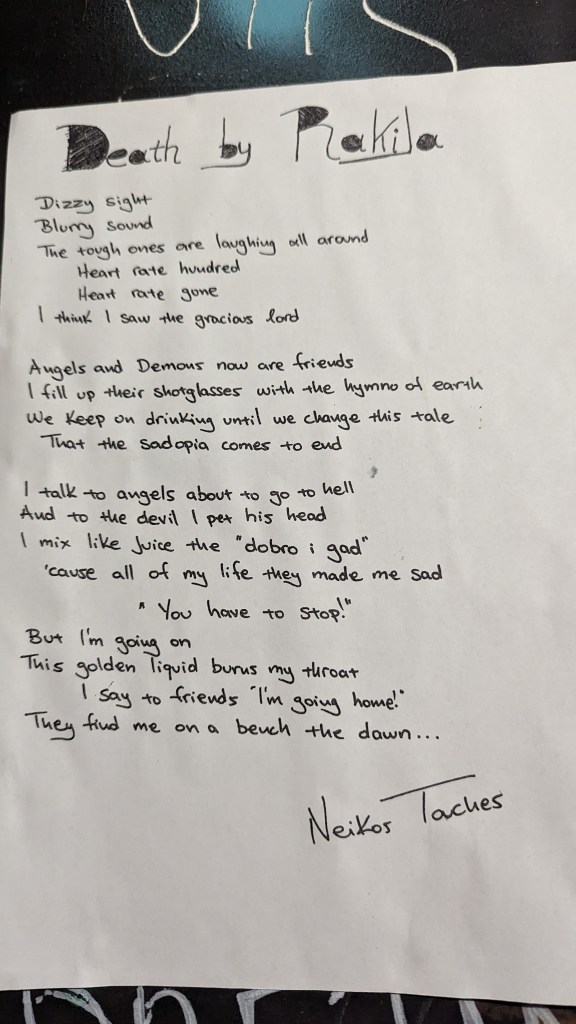 Death by Rakija
Dizzy sight
Blurry sound
The tough ones are laughing all around
Heart rate hundred
Heart rate gone
I think I saw the gracious lord
Angels and Demons now are friends
I fill up their shotglasses with the hymno of earth
We keep on drinking until we change this tale
That the sadopia comes to end
I talk to angels about to go to hell
And to the devil I pet his head
I mix like juice the "dobro i gad"
'cause all of my life they made me sad
"You have to stop!"
But I'm going on
This golden liquid burns my throat
I say to friends "I'm going home!"
They find me on a bench the dawn...
Neikos Taches